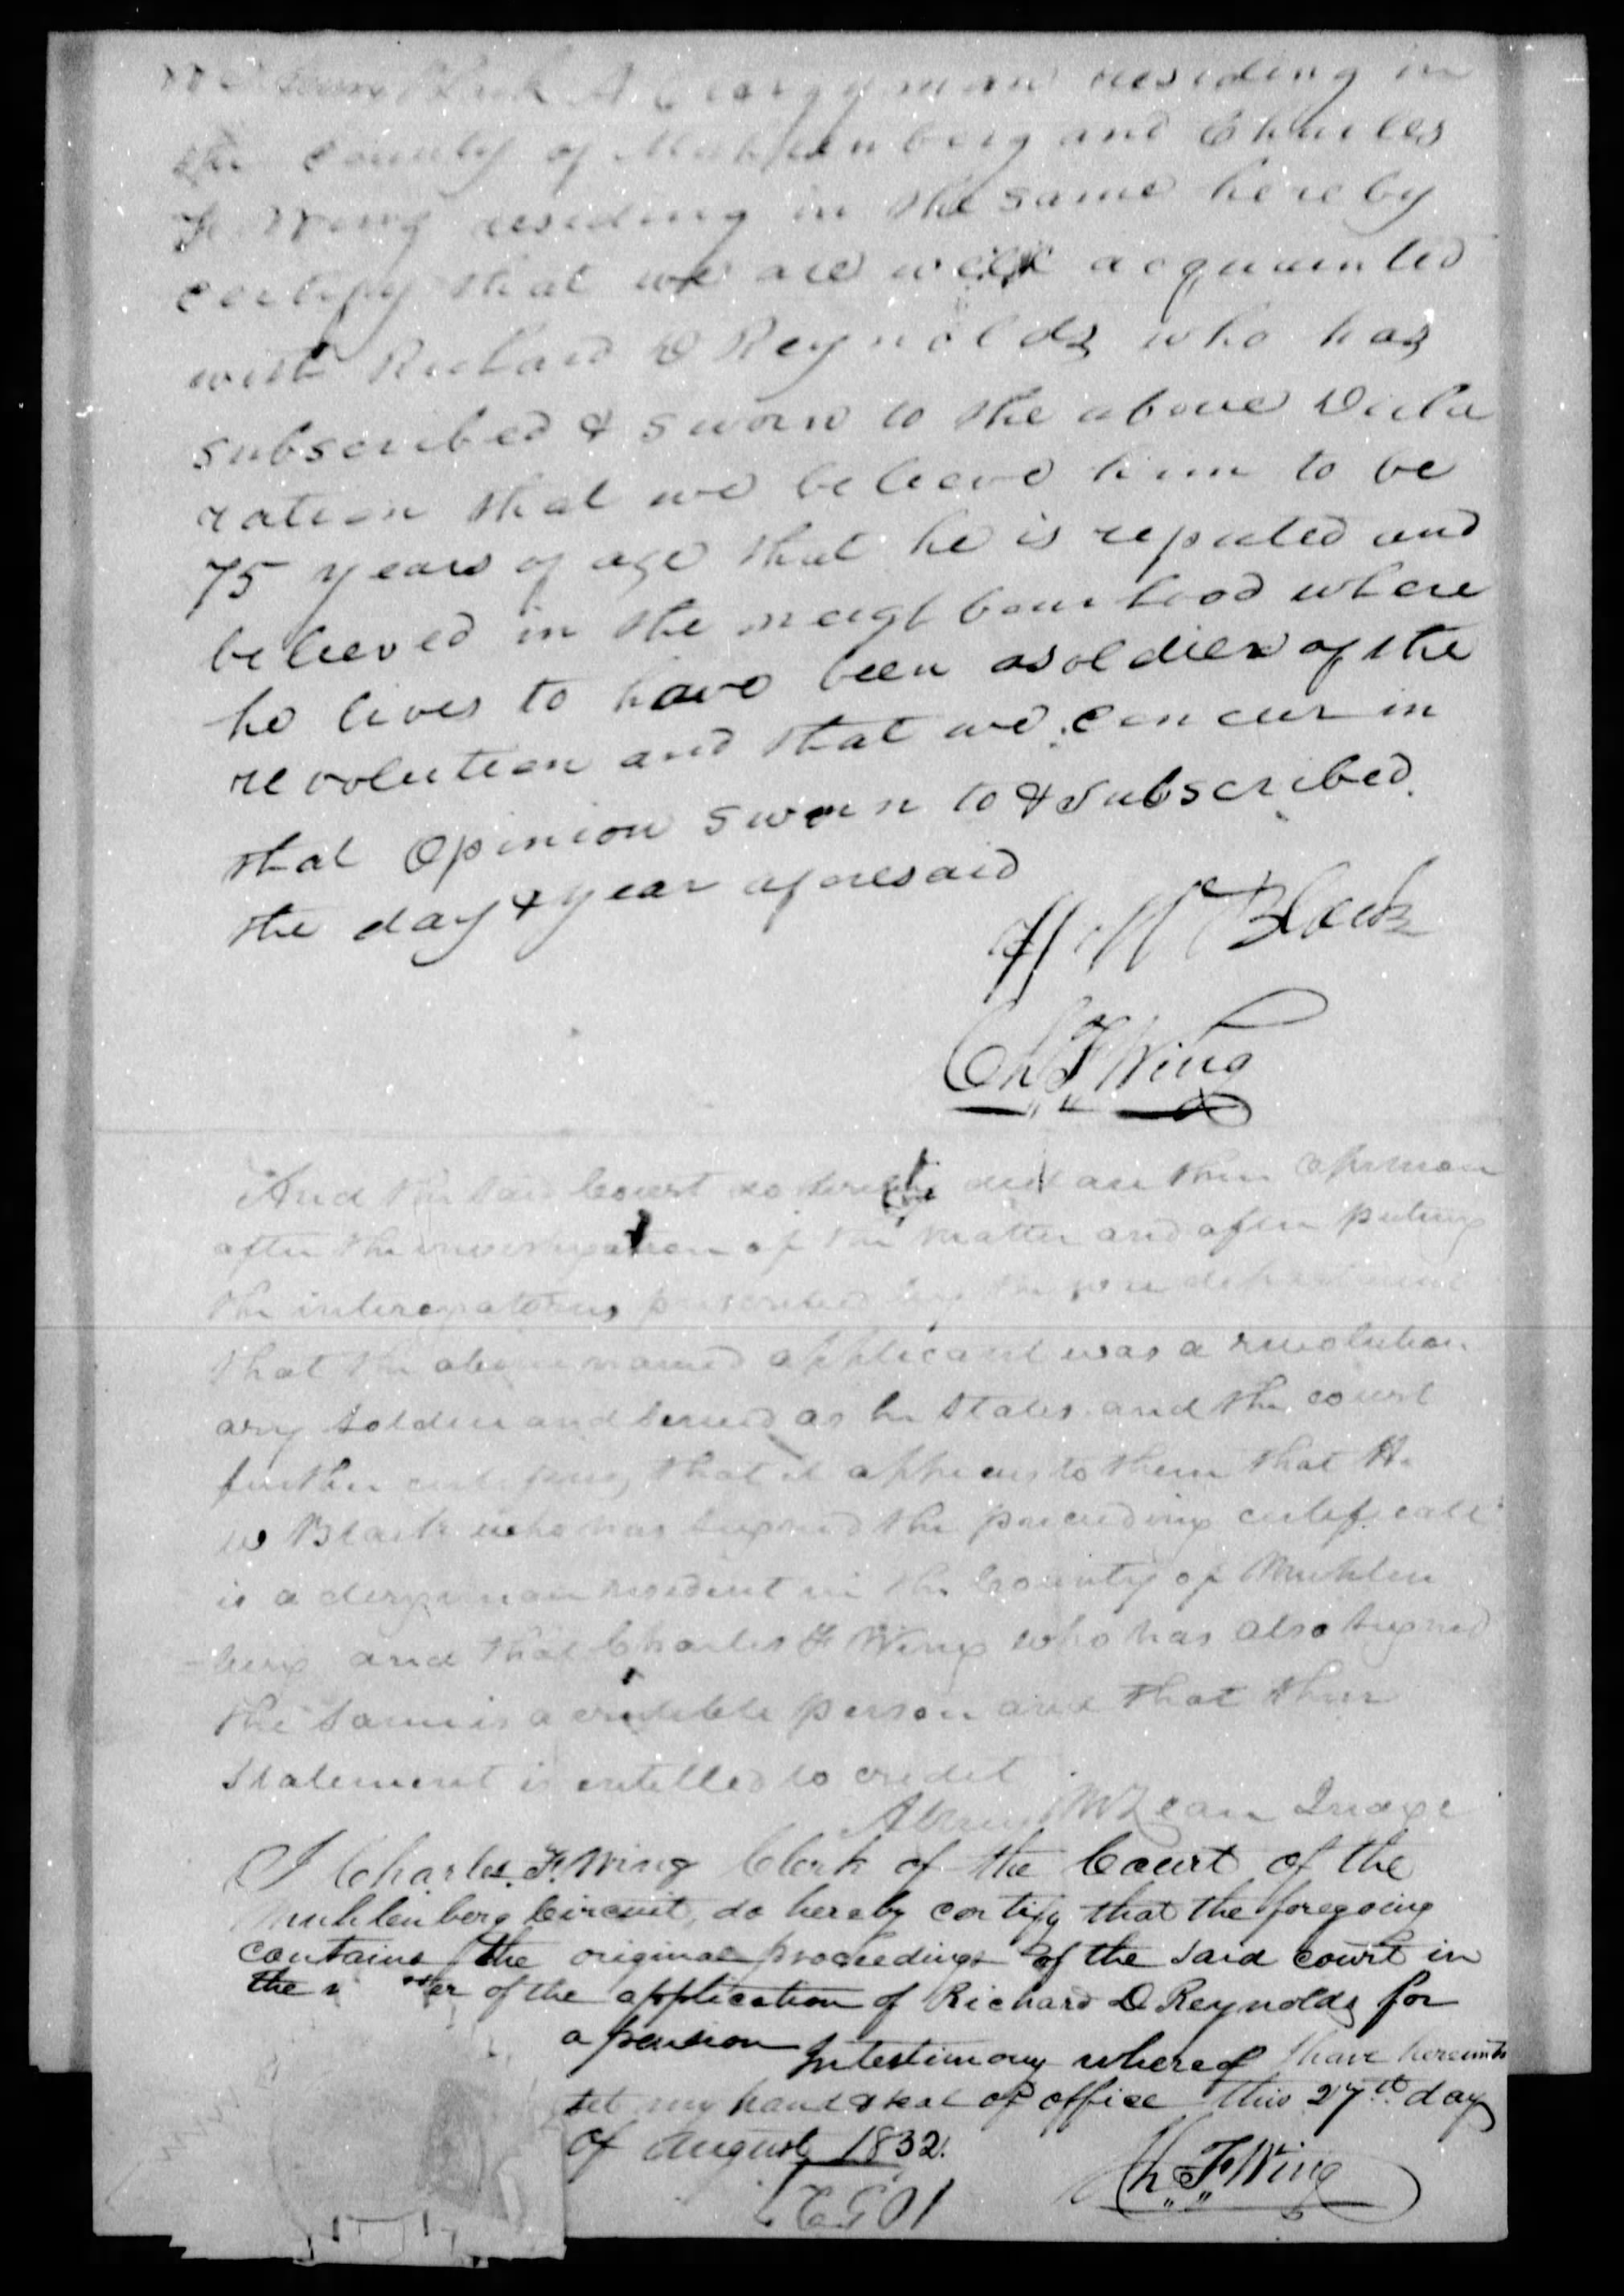 Black A Clergyman residing in
the County of Muhlenberg and Charles
F Wing residing in the same hereby
certify that we are well acquainted
with Richard D Reynolds who has
subscribed & sworn to the above Decla
ration that we believe him to be
75 years of age that he is reputed and
believed in the neighbourhood where
he lives to have been a soldier of the
revolution and that we concur in
that Opinion sworn to & subscribed
the day & year aforesaid
H W Black
Ch F Wing
And the said Court do hereby declare their opinion
after the investigation of the matter and after puting
the interogatories prescribed by the war department
that the above named applicant was a revolution
ary soldier and served as he states and the court
further certifies that it appears to them that H.
W Black who has signed the preceeding certificate
is a clergyman resident in the County of Muhlen
-berg and that Charles F Wing who has also signed
the same is a credible person and that their
statement is entitled to credit
Alney McLean Judge
I Charles F. Wing Clerk of the Court of the
Muhlenberg Circuit, do hereby certify that the foregoing
contains the original proceedings of the said court in
the matter of the application of Richard D Reynolds for
a pension In testimony whereof I have hereunto
set my hand & seal of office this 27th day
of August 1832.
Ch. F. Wing